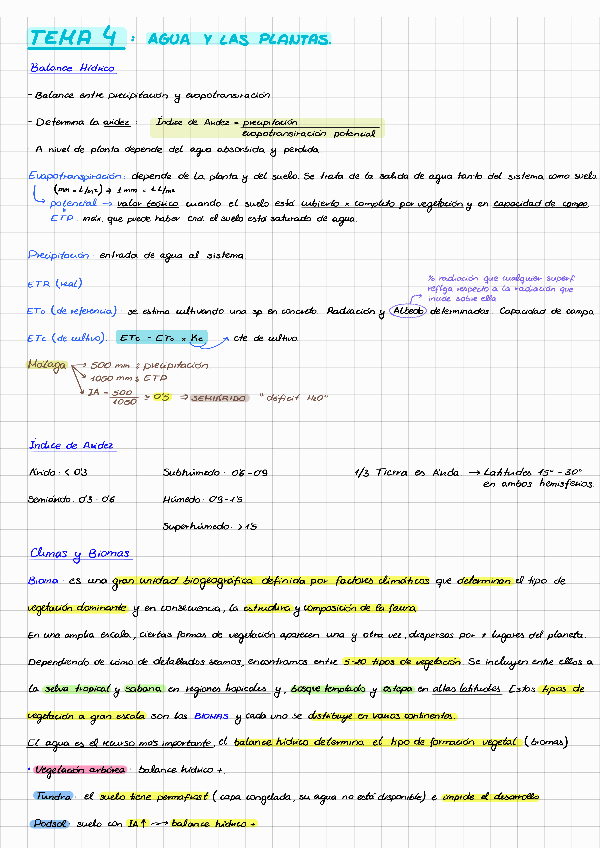 TEMA 4 : AGUA Y LAS PLANTAS.
Balance Hídrico
- Balance entre precipitación y evapotranspiración
- Determina la aridez : Índice de Aridez = precipitación / evapotranspiración potencial
A nivel de planta depende del agua absorbida y perdida.
Evapotranspiración: depende de la planta y del suelo. Se trata de la salida de agua tanto del sistema como suelo.
(mm = L/m²) → 1 mm = 1L/m²
potencial → valor teórico cuando el suelo está cubierto x completo por vegetación y en capacidad de campo.
ETP : máx. que puede haber cnd. el suelo está saturado de agua.
Precipitación: entrada de agua al sistema
ETR (real)
% radiación que cualquier superf.
refleja respecto a la radiación que
incide sobre ella
ET₀ (de referencia): se estima cultivando una sp en concreto. Radiación y Albedo determinados. Capacidad de campo.
ETc (de cultivo). ETc = ET₀ x Kc → cte de cultivo.
Málaga → 500 mm : precipitación
→ 1050 mm : ETP
→ IA = 500/1050 ≥ 0'5 ⇒ SEMIÁRIDO "déficit H₂O"
Índice de Aridez
Árido: < 0'3 Subhúmedo: 0'6 - 0'9 1/3 Tierra es Árida → Latitudes 15° - 30°
en ambos hemisferios.
Semiárido: 0'3 - 0'6 Húmedo: 0'9 - 1'5
Superhúmedo: > 1'5
Climas y Biomas
Bioma: es una gran unidad biogeográfica definida por factores climáticos que determinan el tipo de
vegetación dominante y en consecuencia, la estructura y composición de la fauna.
En una amplia escala, ciertas formas de vegetación aparecen una y otra vez, dispersos por ≠ lugares del planeta.
Dependiendo de cómo de detallados seamos, encontramos entre 5-20 tipos de vegetación. Se incluyen entre ellos a
la selva tropical y sabana en regiones tropicales y, bosque templado y estepa en altas latitudes. Estos tipos de
vegetación a gran escala son los BIOMAS y cada uno se distribuye en varios continentes.
El agua es el recurso más importante, el balance hídrico determina el tipo de formación vegetal (biomas)
· Vegetación arbórea: balance hídrico +.
Tundra: el suelo tiene permafrost (capa congelada, su agua no está disponible) e impide el desarrollo
Podsol: suelo con IA↑ → balance hídrico +